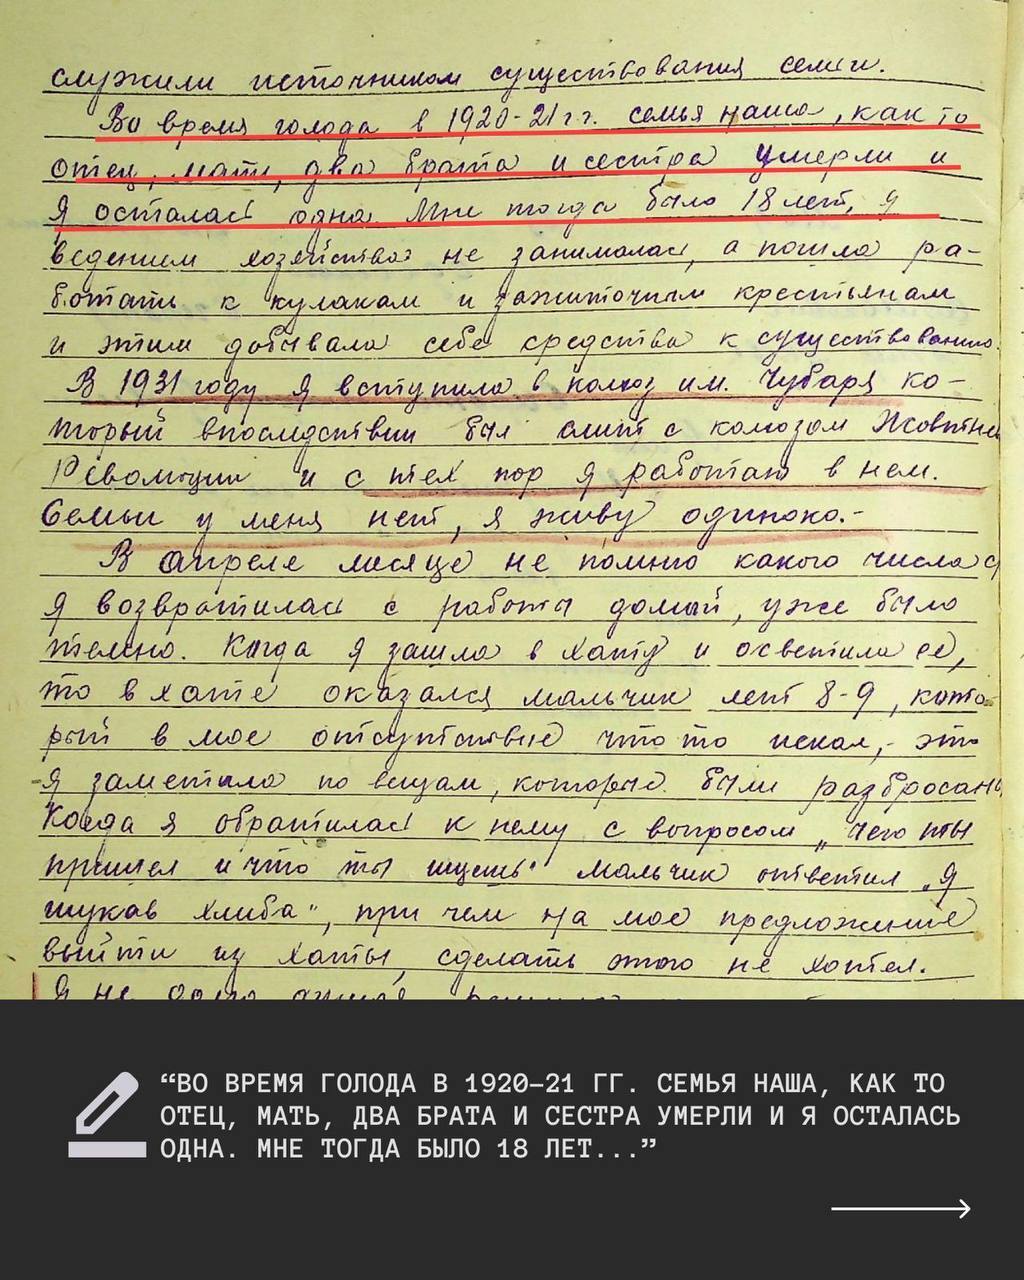 служили источником существования семьи.
Во время голода в 1920-21 г.г. семья наша, как то
отец, мать, два брата и сестра умерли и
я осталась одна. Мне тогда было 18 лет, я
ведением хозяйства не занималась, а пошла ра-
ботать к кулакам и зажиточным крестьянам
и этим добывала себе средства к существованию.
В 1931 году я вступила в колхоз им. Чубаря ко-
торый впоследствии был слит с колхозом Жовтнев
Революции и с тех пор я работаю в нем.
Семьи у меня нет, я живу одиноко.-
В апреле месяце не помню какого числа
я возвратилась с работы домой, уже было
темно. Когда я зашла в хату и осветила ее,
то в хате оказался мальчик лет 8-9, кото-
рый в мое отсутствие что то искал, - это
я заметила по вещам, которые были разбросаны
Когда я обратилась к нему с вопросом „чего ты
пришел и что ты ищешь" мальчик ответил „Я
шукав хлиба", при чем на мое предложение
выйти из хаты, сделать этого не хотел.
Я не долго думая
“ВО ВРЕМЯ ГОЛОДА В 1920–21 ГГ. СЕМЬЯ НАША, КАК ТО
ОТЕЦ, МАТЬ, ДВА БРАТА И СЕСТРА УМЕРЛИ И Я ОСТАЛАСЬ
ОДНА. МНЕ ТОГДА БЫЛО 18 ЛЕТ...”